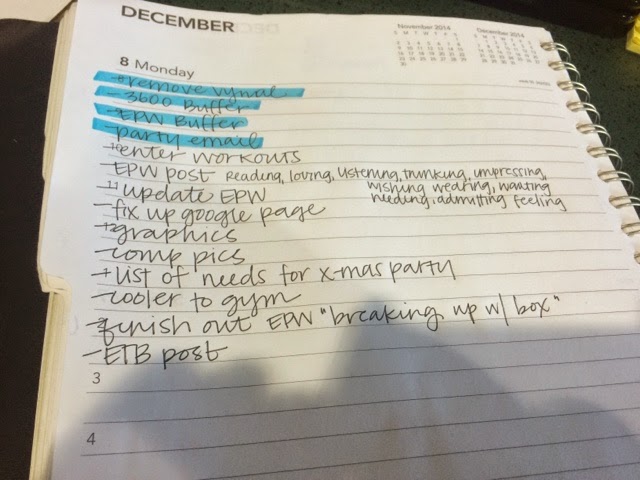 DECEMBER
November 2014
December 2014
8 Monday
-remove vynal
-3600 Buffer
-EPW Buffer
-party email
10
enter workouts
EPW post reading, loving, listening, thinking, impressing,
wishing wearing, wanting
needing, admitting feeling
11
update EPW
-fix up google page
12
graphics
-comp pics
-list of needs for x-mas party
-cooler to gym
-finish out EPW "breaking up w/ box"
-ETB post
3
4